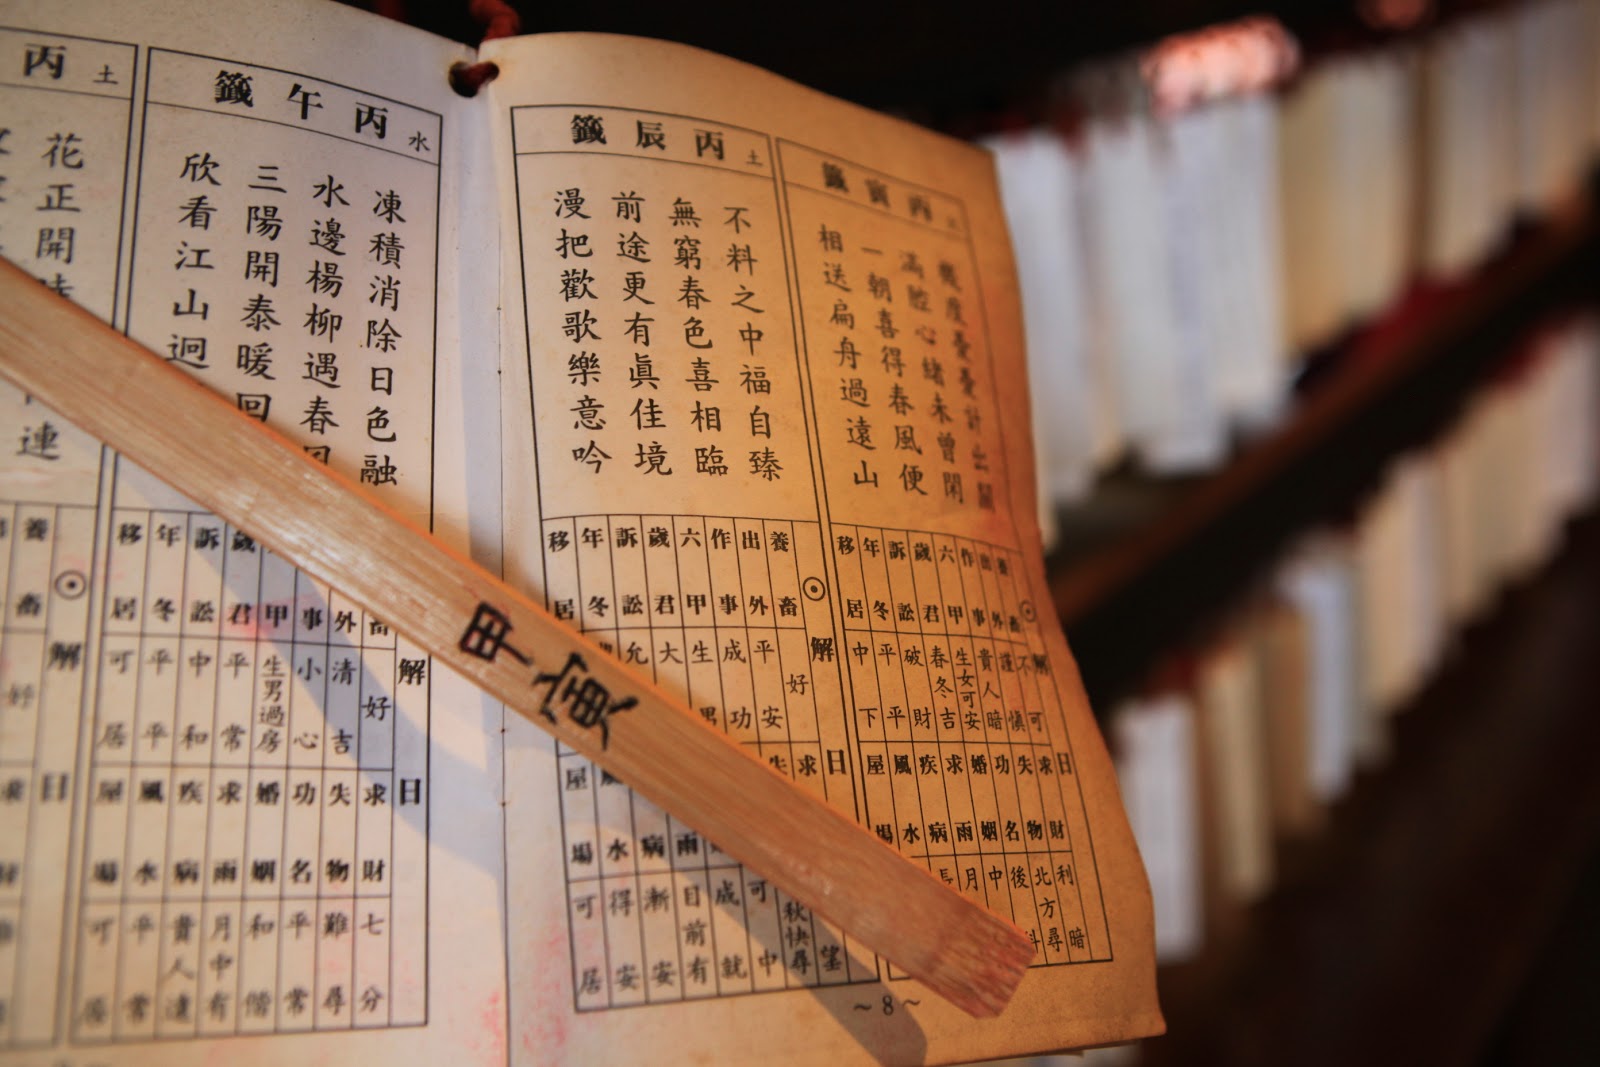 丙寅籤
滿腔心緒未曾閑
一朝喜得春風便
相送扁舟過遠山
解曰
養畜 不可
出外 謹慎
作事 貴人暗
六甲 生女可安
歲君 春冬吉
訴訟 破財
年冬 平平
移居 中下
求財 利暗
失物 北方尋
功名 後科
婚姻 中
求雨 月
疾病 長
風水
屋場
丙辰籤 土
不料之中福自臻
無窮春色喜相臨
前途更有眞佳境
漫把歡歌樂意吟
解曰
養畜 好
出外 平安
作事 成功
六甲 生男
歲君 大
訴訟 允
年冬
移居
求 望
失 秋快尋
可中
成就
雨 目前有
病 漸安
風水 得安
屋場 可居
~8~
丙午籤 水
凍積消除日色融
水邊楊柳遇春風
三陽開泰暖回
欣看江山迥
解曰
養畜 好
外 清吉
事 小心
甲 生男過房
歲君 平常
訴訟 中和
年冬 平平
移居 可居
求財 七分
失物 難尋
功名 平常
婚姻 和偕
求雨 月中有
疾病 貴人遠
風水 平常
屋場 可居
丙 土
花正開
連
解曰
養畜 好
甲寅